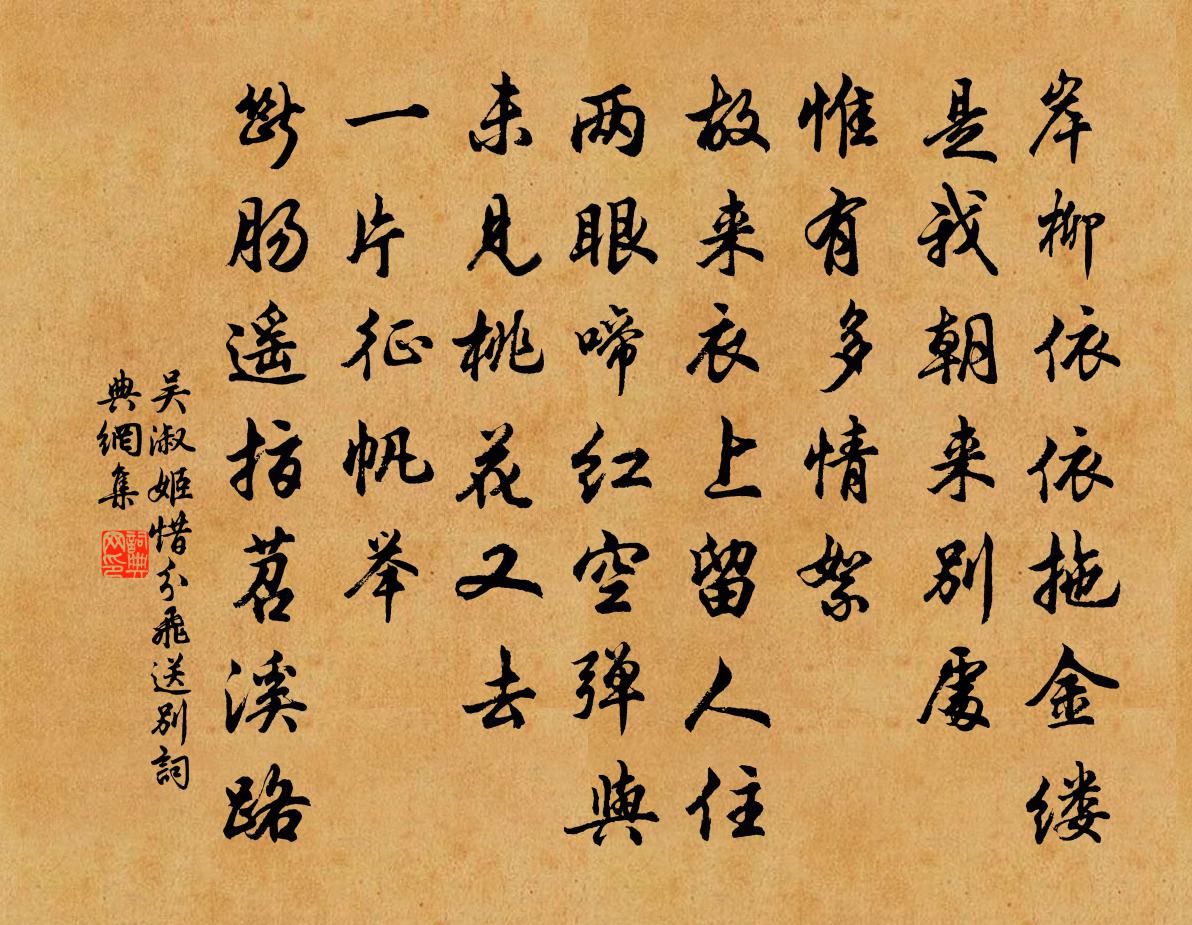 岸柳依依拖金缕
是我朝来别處
惟有多情絮
故来衣上留人住
两眼啼红空弹與
未见桃花又去
一片征帆举
斷肠遥指苕溪路
吴淑姬惜分飛送别詞
典網集
詞典网印